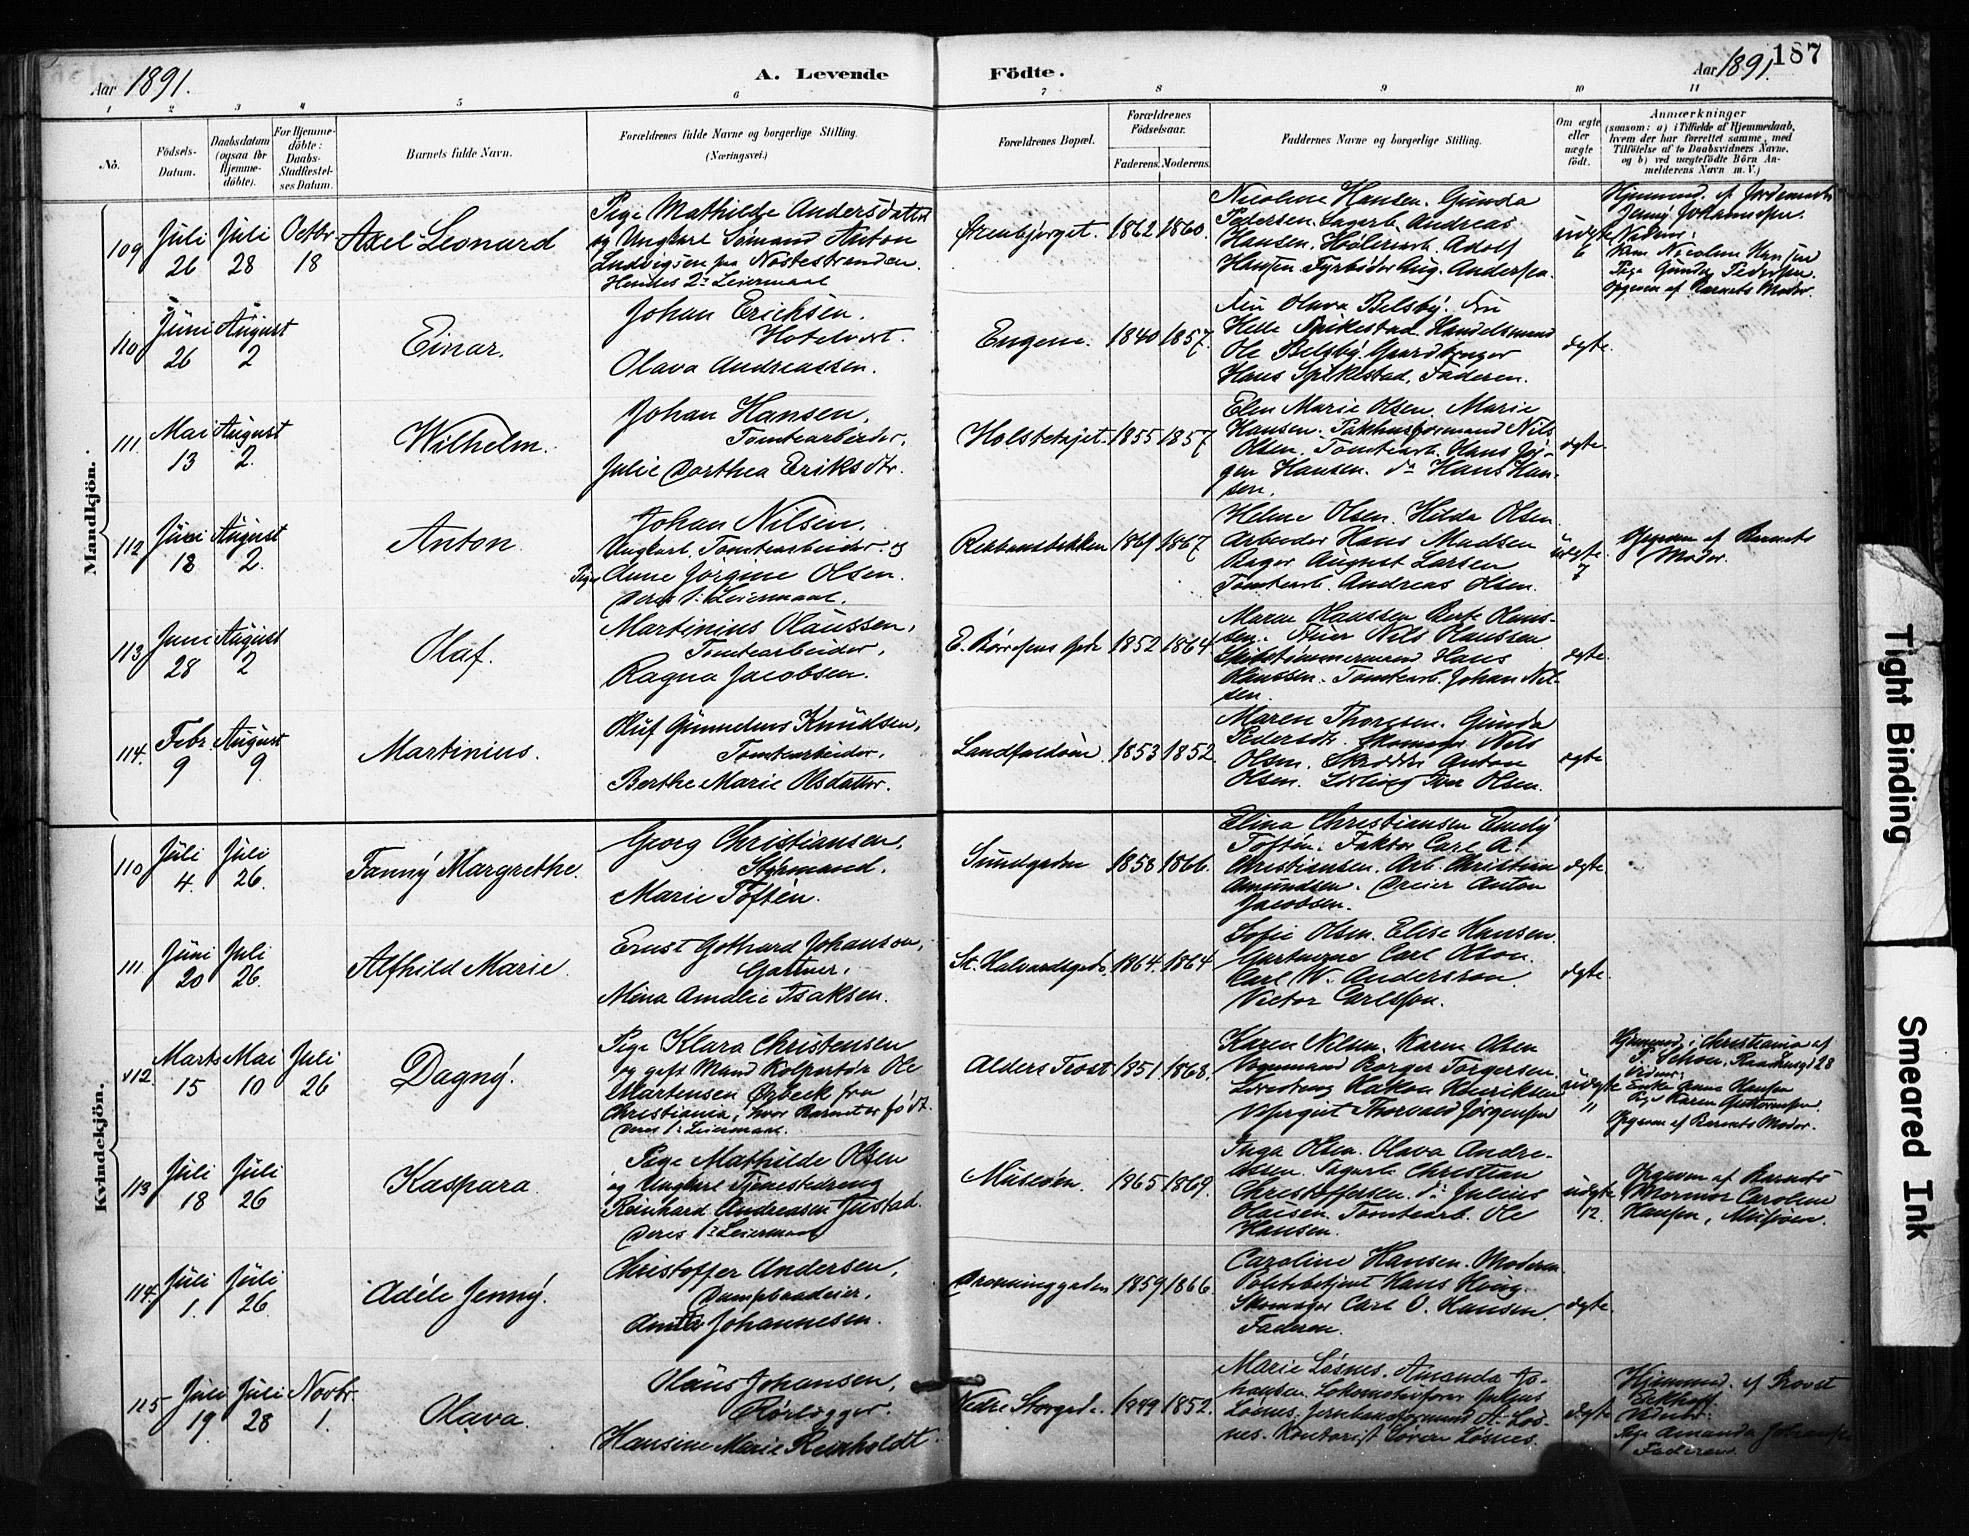 187
Aar 1891.
A. Levende Födte.
Aar 1891.
1 2 3 4 5 6 7 8 9 10 11
No.
Födsels-Datum.
Daabsdatum (ogsaa for Hjemme-döbte).
For Hjemme-döbte: Daabs-Stadfæstel-ses Datum.
Barnets fulde Navn.
Forældrenes fulde Navne og borgerlige Stilling. (Næringsvei.)
Forældrenes Bopæl.
Forældrenes Födselsaar.
Faderens. Moderens.
Faddernes Navne og borgerlige Stilling.
Om ægte eller uægte födt.
Anmærkninger
(saasom: a) i Tilfælde af Hjemmedaab, hvem der har forrettet samme, med Tilföielse af to Daabsvidners Navne, og b) ved uægtefödte Börn An-melderens Navn m. V.)
Mandkjön.
109 Juli 26 Juli 28 Octbr 18
Axel Leonard
Pige Mathilde Andersdatter
og Ungkarl Sömand Anton
Ludvigsen fra Nöstestranden.
Hendes 2: Leiermaal
1862 1860.
Nicoline Hansen. Gunda
Pedersen. Sagarb. Andreas
Hansen. Höleriarb. Adolf
Hansen. Fyrböder Aug. Andersen.
uægte 6
Hjemmed. af Jordemoder
Jenny Johannessen.
Kone Nicoline Hansen
Pige Gunda Pedersen.
Opgiven af Barnets Moder.
110 Juni 26 August 2
Einar.
Johan Ericksen.
Hotelvert.
Olava Andreassen.
Engene. 1840 1857.
Fru Olava Belsby. Fru
Helle Spikestad. Handelsmand
Ole Belsby. Gaardbruger
Hans Spikestad. Faderen.
ægte.
111. Mai 13 August 2.
Wilhelm.
Johan Hansen,
Tomtearbeider,
Julie Dorthea Eriksdtr.
1855 1857
Elen Marie Olsen. Marie
Hansen. Pakhusformand Nils
Olsen. Tomtearb. Hans Jör-
gen Hansen. do Hans Han-
sen.
ægte.
112 Juni 18 August 2.
Anton.
Johan Nilsen.
Ungkarl, Tomtearbeider og
Pige Anne Jörgine Olsen.
Deres 1: Leiermaal.
Rebbansbakken 1869 1867
Helene Olsen. Hilda Olsen
Arbeider Hans Madsen
Bager August Larsen
Tomtearb. Andreas Olsen.
uægte. 7
Opgiven af Barnets
Moder.
113 Juni 28 August 2
Olaf.
Martinius Olaussen,
Tomtearbeider,
Ragna Jacobsen.
1852 1864
Skibstömmermand Hans
Tomtearb. Johan Nil-
sen
ægte.
114. Febr. 9 August 9
Martinius.
Oluf Gunnelius Knudsen,
Tomtearbeider,
Berthe Marie Olsdatter.
Landfaldöen 1853 1852
Maren Thoresen. Gunda
Pedersdtr. Skomager Nils
Olsen. Skrædder Anton
Olsen. Lærling Iver Olsen.
ægte
Kvindekjön.
110 Juli 4. Juli 26.
Fanny Margrethe.
Georg Christiansen,
Styrmand.
Marie Toftén.
Sundgaden 1858 1866.
Elina Christiansen Emely
Toftén. Faktor Carl A.
Christiansen. Arb. Christian
Amundsen. Dreier Anton
Jacobsen.
ægte
111. Juni 20 Juli 26.
Alfhild Marie.
Ernst Gothard Johanson,
Gartner,
Mina Amalie Isaksen.
St. Halvardsgade. 1864. 1864
Sofie Olsen. Elise Hansen.
Gartnerne Carl Olson.
Carl W. Andersson.
Victor Carlsson.
ægte.
112. Marts 15 Mai 10 Juli 26
Dagny.
Pige Klara Christensen
og gift Mand Kolportör Ole
Martensen Örbeck fra
Christiania, hvor Barnet er födt.
Deres 1: Leiermaal.
Alders Trost 1851. 1868.
Karen Nilsen. Karen Olsen
Vognmand Borger Torgersen.
Hakon Henriksen
Thorvald Jörgensen
uægte 11
Hjemmed. i Christiania af
P. Schou, Raadhusgt 28
Vidner:
Enke Anna Hansen
Pige Karen Guttormsen
Opgiven af Barnets Moder.
113 Juli 18 Juli 26
Kaspara.
Pige Mathilde Olsen
og Ungkarl Tjenestedreng
Reinhard Andreasen Justad.
Deres 1: Leiermaal
Museöen. 1865 1869.
Inga Olsen. Olava Andre-
assen. Sagarb. Christian
Christoffersen. do Julius
Olaisen. Tomtearb. Ole
Hansen.
uægte 12.
Opgiven af Barnets
Mormor Caroline
Hansen, Musöen.
114. Juli 1. Juli 26
Adéle Jenny.
Christoffer Andersen,
Dampbaadeier,
Anna Johannesen.
Dronninggaden 1859 1866
Caroline Hansen. Moderen.
Politibetjent Hans Haug.
Skomager Carl O. Hansen.
Faderen.
ægte.
115 Juli 19. Juli 28 Novbr. 1.
Olava.
Olaus Johansen,
Rörlægger.
Hansine Marie Reinholdt.
Nedre Storgade. 1849 1852.
Marie Lösnes. Amanda Jo-
hansen. Lokomotivförer Julius
Lösnes. Jernbaneformand A. Lös-
nes. Kontorist Sören Lösnes.
ægte
Hjemmed. af Provst
Eckhoff.
Vidner:
Pige Amanda Johansen
Faderen.
Tight Binding
Smeared Ink